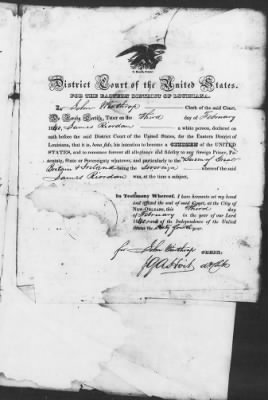 District Court of the United States.
FOR THE EASTERN DISTRICT OF LOUISIANA.
I, John Winthrop Clerk of the said Court,
Do Hereby Certify, That on the Third day of February
James Riordan a white person, declared on
oath before the said District Court of the United States, for the Eastern District of
Louisiana, that it is, bona fide, his intention to become a CITIZEN of the UNITED
STATES, and to renounce forever all allegiance and fidelity to any foreign Prince, Po-
tentate, State or Sovereignty whatever, and particularly to the Queen of Great
Britain & Ireland being the Sovereign whereof the said
James Riordan was at the time a subject.
In Testimony Whereof, I have hereunto set my hand
and affixed the seal of said Court, at the City of
NEW-ORLEANS, this Third day
of February in the year of our Lord
and of the Independence of the United
States the Sixty fourth year.
for John Winthrop CLERK.